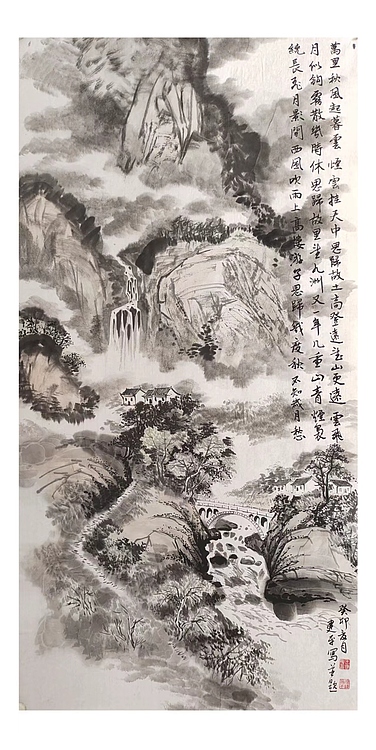 萬里秋風起暮雲煙雲挂天中思歸故土高登遠望山更遠雲飛
月似鉤霧散幾時休思歸故里望九洲又一年几重山青煙裊
繞長飛月影閑西風吹雨上高樓遊子思歸幾度秋不知歲月愁
癸卯春月
建平寫並題